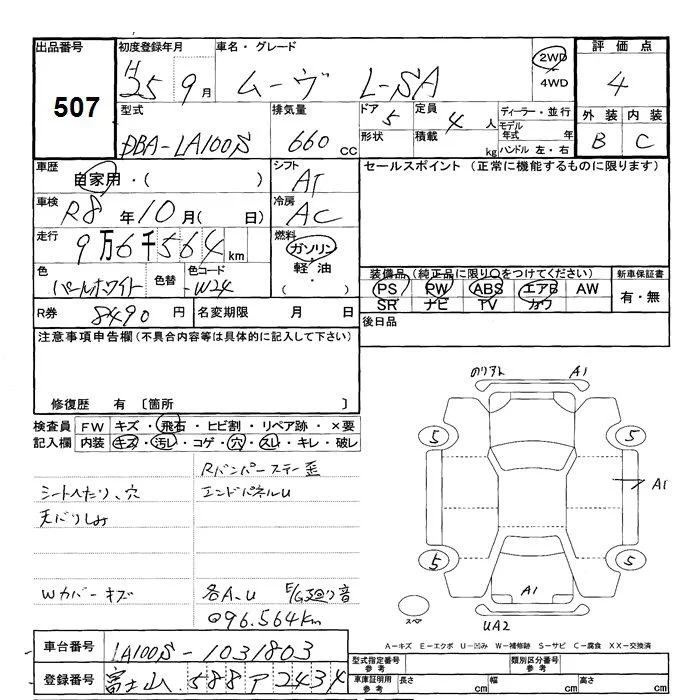 出品番号 507
初度登録年月 H25 9月
車名・グレード ムーヴ L-SA
2WD 4WD
評価点 4
外装 B 内装 C
型式 DBA-LA100S
排気量 660cc
ドア 5 形状
定員 4人 積載 kg
ディーラー・並行
モデル年式 年
ハンドル 左・右
車歴 自家用・( )
シフト AT
セールスポイント (正常に機能するものに限ります)
車検 R8年10月( 日)
冷房 AC
走行 9万6千564km
燃料 ガソリン・軽油・( )
色 パールホワイト 色替 色コード W24
装備品 (純正品に限り○をつけてください)
PS PW ABS エアB AW
SR ナビ TV カワ
新車保証書 有・無
R券 8490円 名変期限 月 日
後日品
注意事項申告欄 (不具合内容等は具体的に記入して下さい)
修復歴 有 [箇所 ]
検査員記入欄
FW キズ・飛石・ヒビ割・リペア跡・×要
内装 キズ・汚レ・コゲ・穴・スレ・キレ・破レ
Rバンパーステー歪
シートへたり、穴 エンドパネルU
天バリしみ
Wカバーキズ 各A、U E/G廻り音
96.564km
のリアト A1
5 5
A1
5 5
A1
スペア UA2
A-キズ E-エクボ U-凹み W-補修跡 S-サビ C-腐食 XX-交換済
車台番号 LA100S-1031803
登録番号 富士山 588 ア 2434
型式指定番号 参考 類別区分番号 参考
車庫証明用 参考 長さ cm 幅 cm 高さ cm